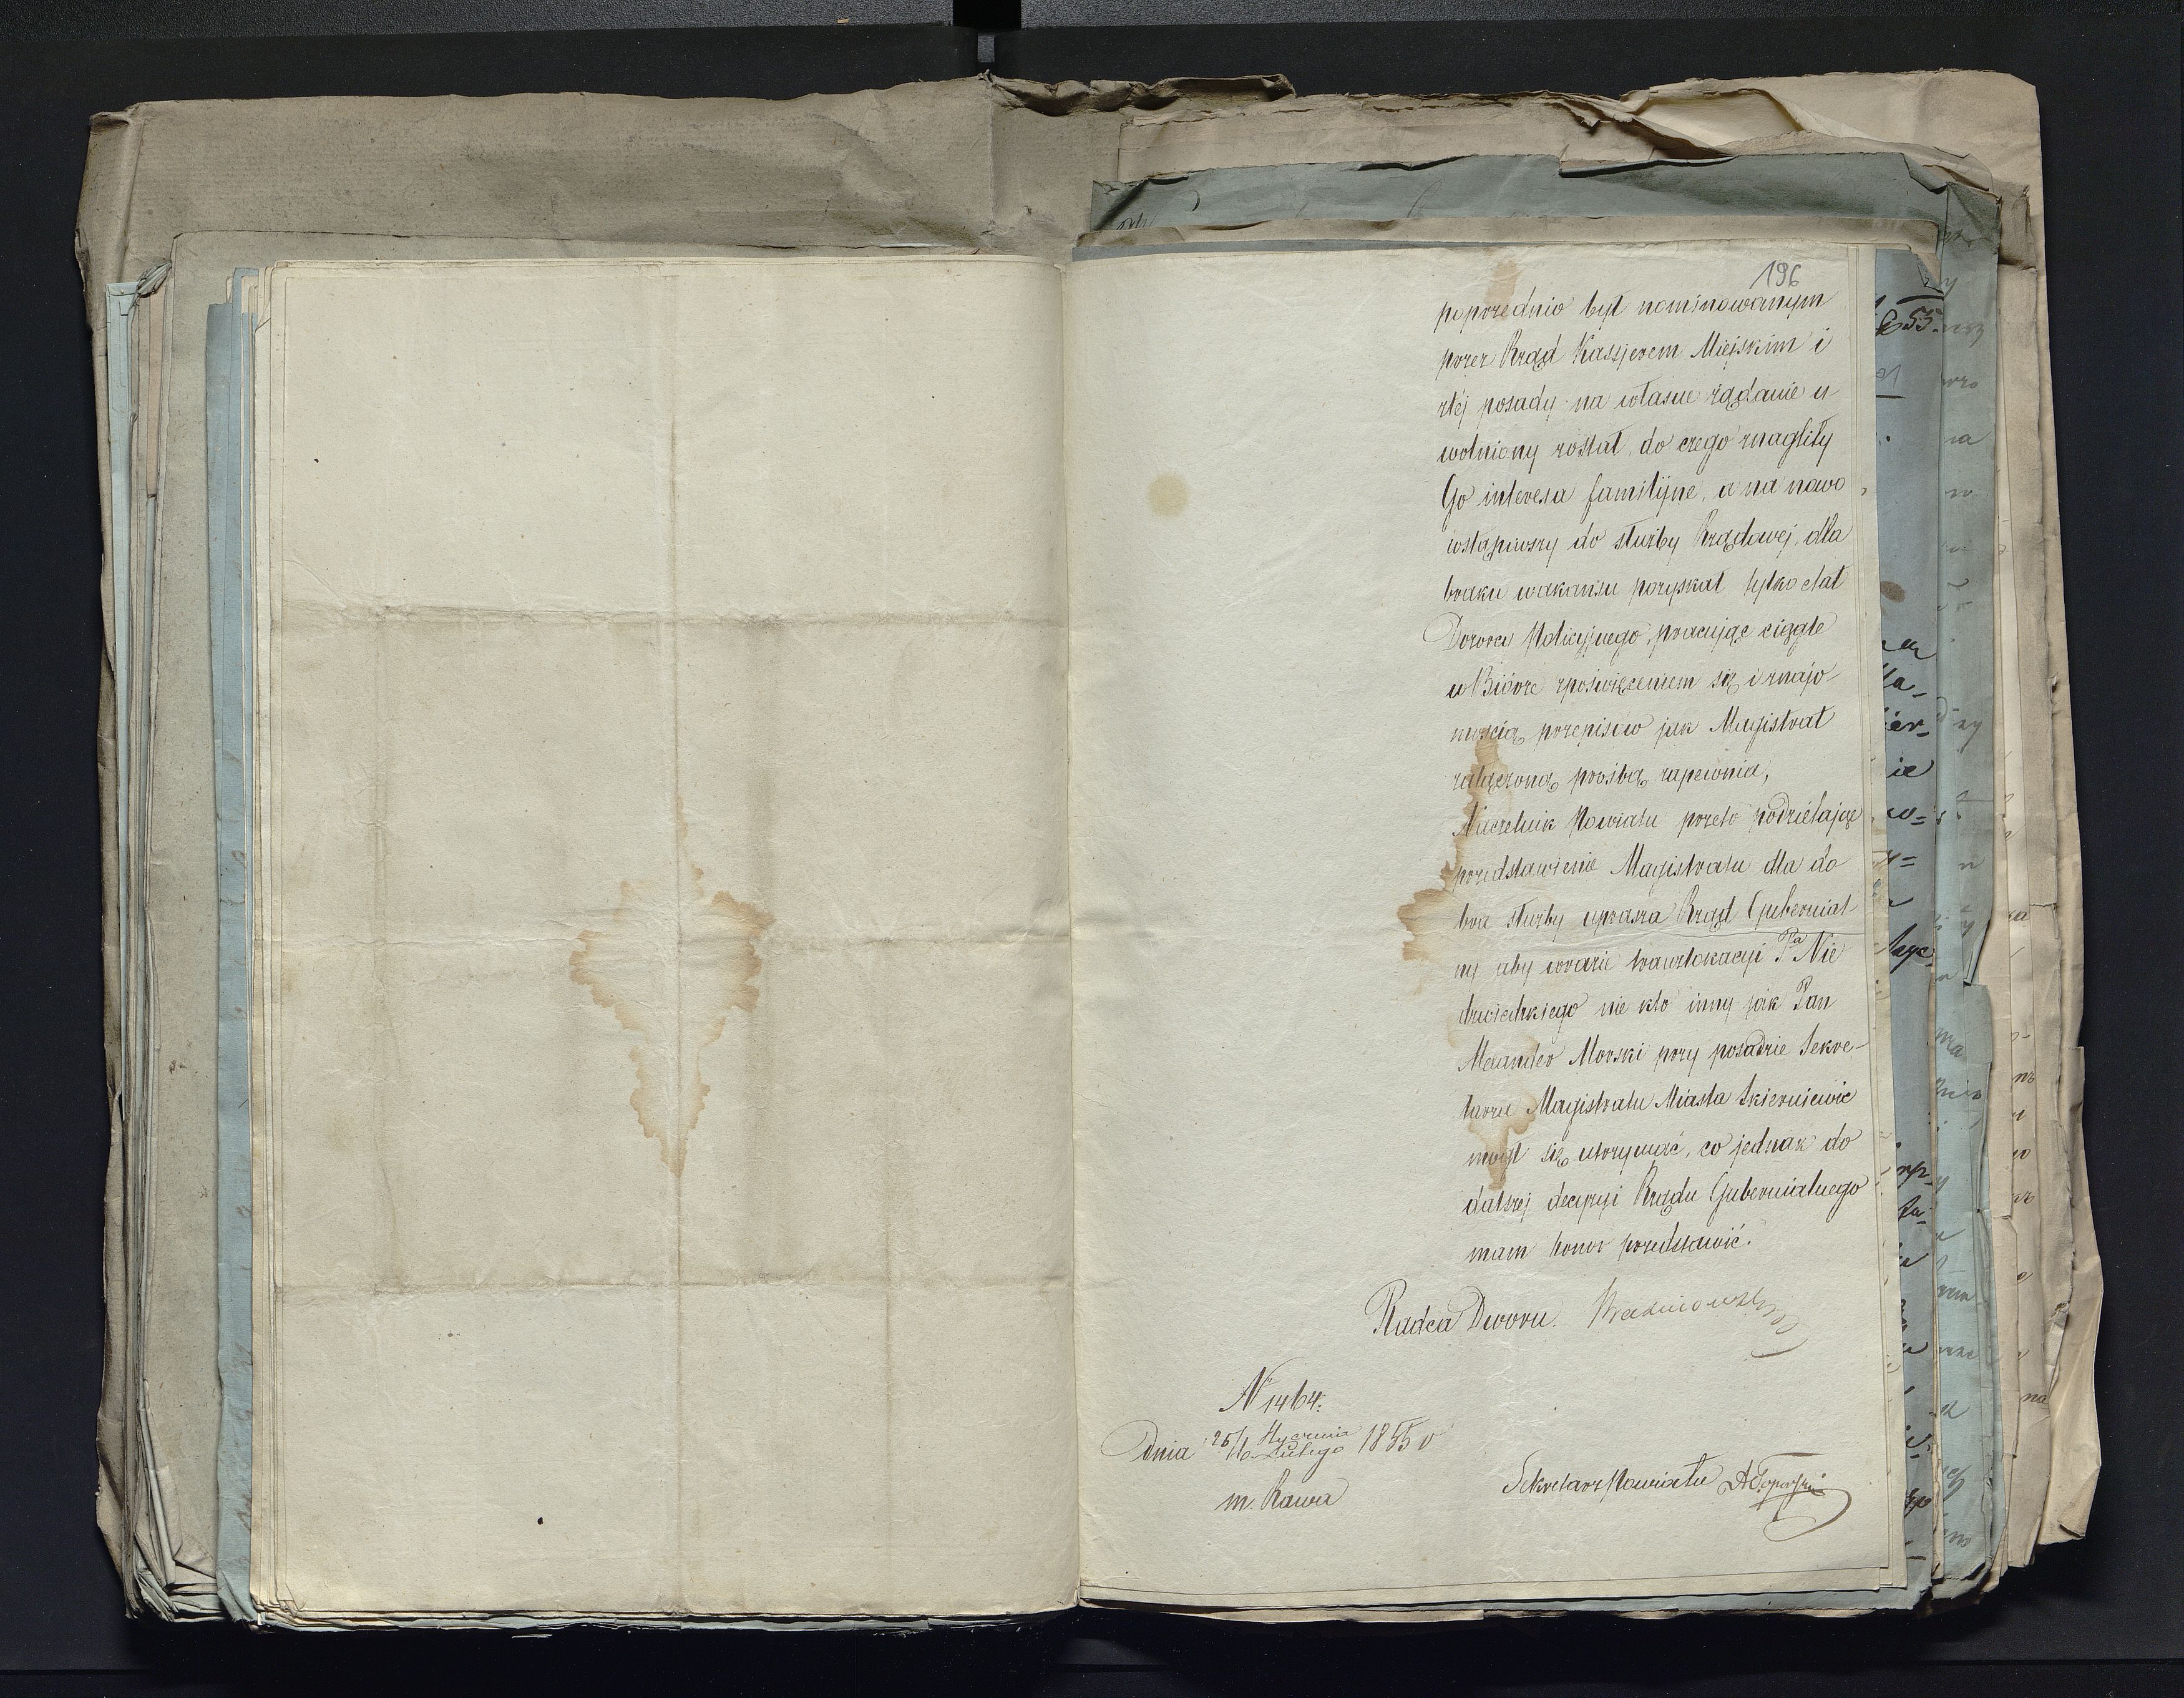 196
poprzednio był nominowanym
przez Rząd Kassjerem Miejskim i
ztéj posady na własne żądanie u-
wolniony został, do czego znagliły
Go interesa familijne, a na nowo
wstąpiwszy do służby Rządowej, dla
braku wakansu pozyskał tylko etat
Dozorcy Policyjnego, pracując ciągle
w Biórze zpoświęceniem się i znajo-
mością przepisów jak Magistrat
załączoną prośbą zapewnia,
Naczelnik Powiatu przeto podzielając
przedstawienie Magistratu dla do
bra służby uprasza Rząd Gubernial-
ny aby wrazie translokacyi Pa Nie
dzwiedzkiego nie kto inny jak Pan
Alexander Morski przy posadzie Sekre-
tarza Magistratu Miasta Skierniewic
mógł się utrzymać, co jednak do
dalszej decyzyi Rządu Gubernialnego
mam honor przedstawić.
Radca Dworu
N 1464.
Dnia 25/6 Stycznia Lutego 1855 r
m. Rawa
Sekretarz Powiatu A Toporski